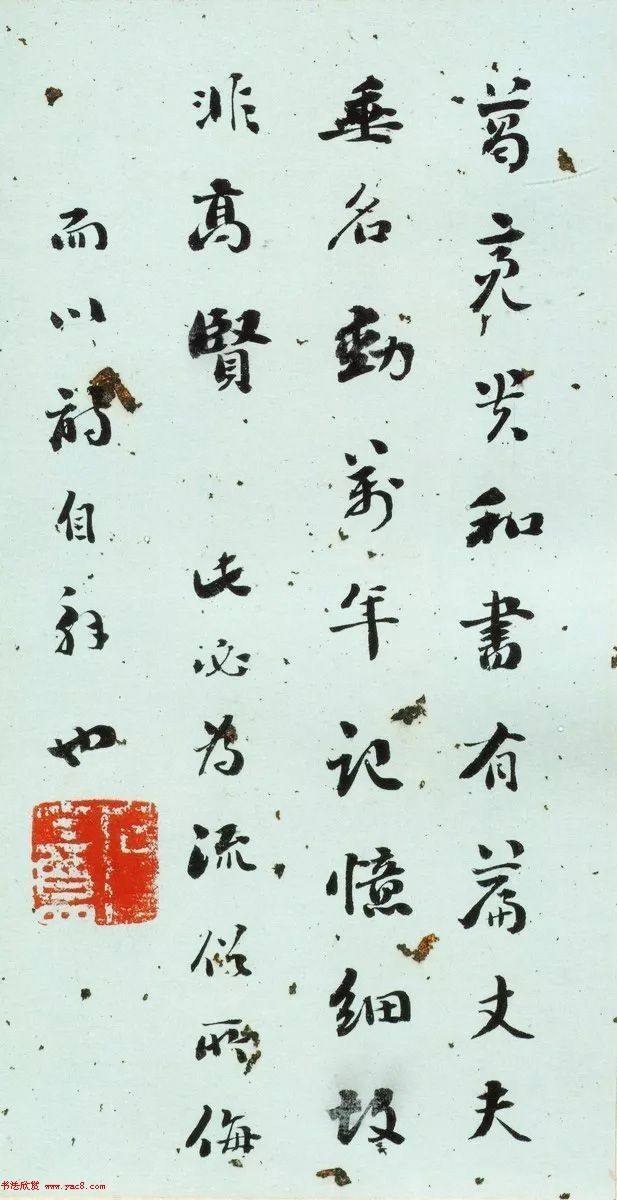 葛亮貴和書有篇丈夫
垂名動萬年記憶細故
非高賢 此必為流俗所侮
而以詩自解也
书法欣赏 www.yac8.com